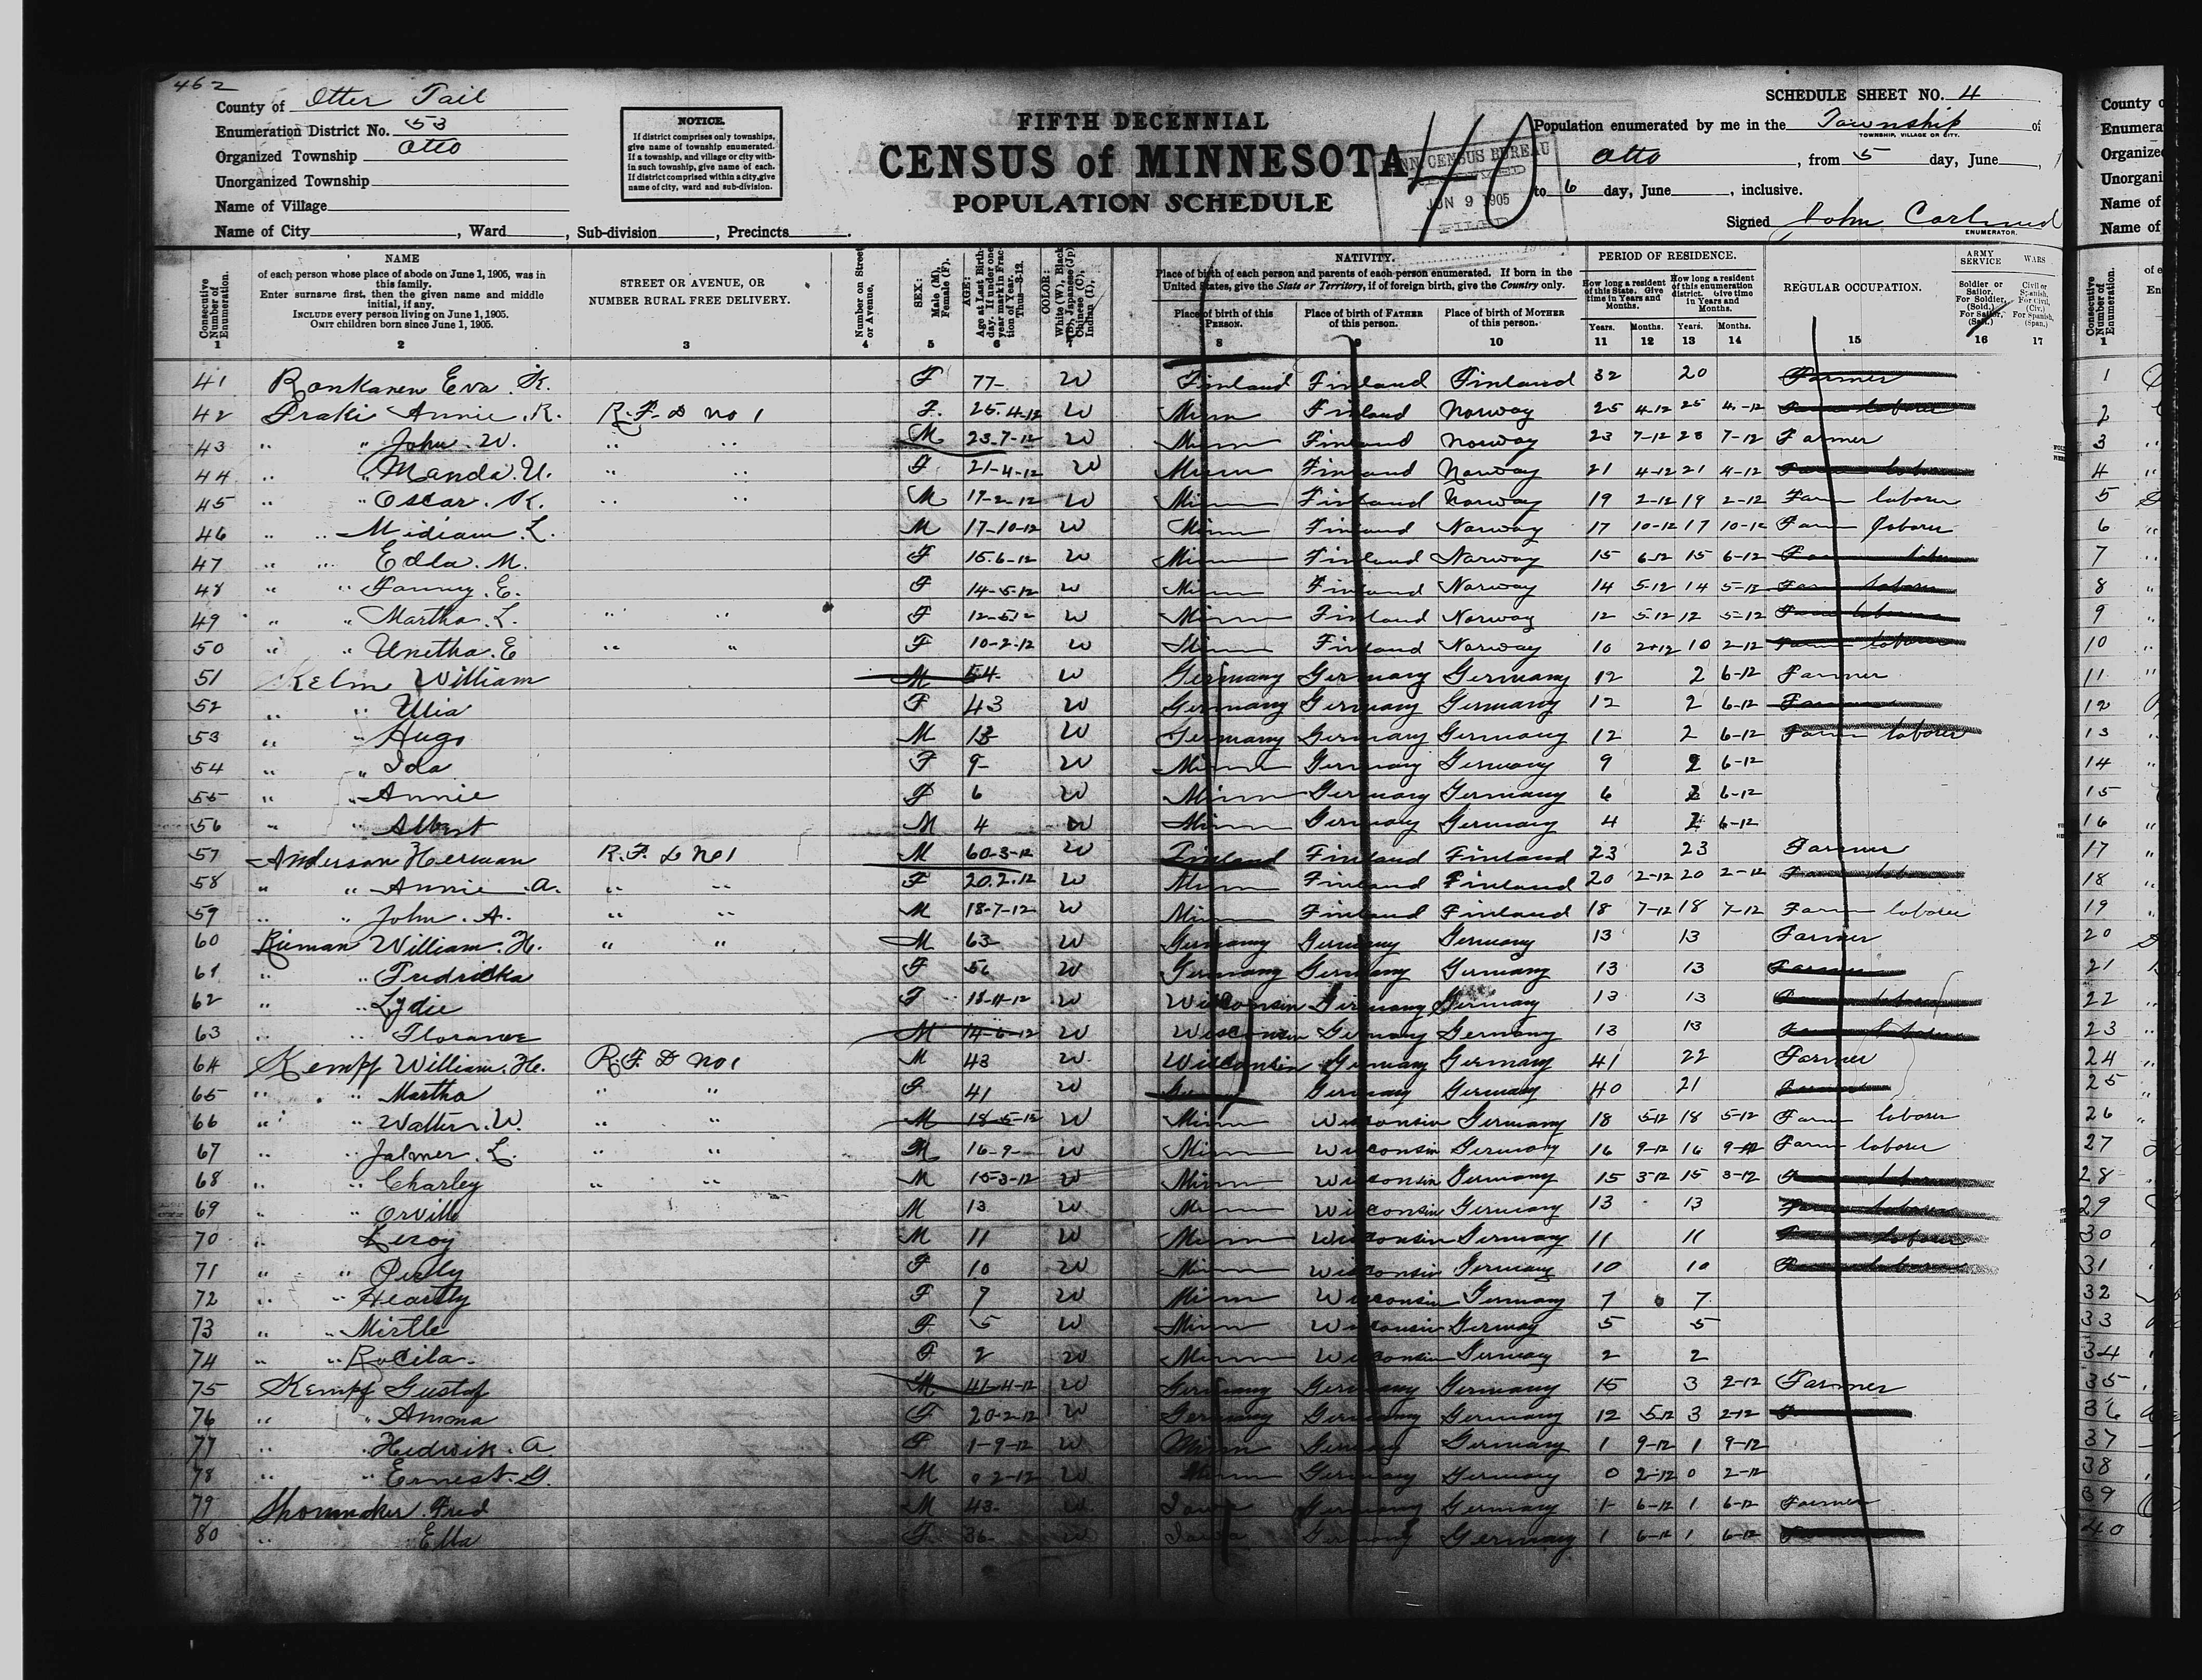 462
County of Otter Tail
Enumeration District No. 53
Organized Township Otto
Unorganized Township
Name of Village
Name of City , Ward , Sub-division , Precincts .
NOTICE.
If district comprises only townships, give name of township enumerated. If a township, and village or city within such township, give name of each. If district comprised within a city, give name of city, ward and sub-division.
FIFTH DECENNIAL
CENSUS of MINNESOTA
POPULATION SCHEDULE
40
CENSUS BUREAU
JUN 9 1905
SCHEDULE SHEET NO. 4
Population enumerated by me in the Township of
TOWNSHIP, VILLAGE OR CITY.
Otto , from 5 day, June ,
to 6 day, June , inclusive.
Signed John
ENUMERATOR.
Consecutive Number of Enumeration. 1
NAME
of each person whose place of abode on June 1, 1905, was in this family.
Enter surname first, then the given name and middle initial, if any.
INCLUDE every person living on June 1, 1905.
OMIT children born since June 1, 1905.
2
STREET OR AVENUE, OR NUMBER RURAL FREE DELIVERY. 3
Number on Street or Avenue, 4
SEX: Male (M), Female (F). 5
AGE: Age at Last Birthday. If under one year mark in Fraction of Year. Thus—3-12. 6
COLOR: White (W), Black (B), Japanese (Jp), Chinese (C), Indian (I), 7
NATIVITY.
Place of birth of each person and parents of each person enumerated. If born in the United States, give the State or Territory, if of foreign birth, give the Country only.
Place of birth of this PERSON. 8
Place of birth of FATHER of this person. 9
Place of birth of MOTHER of this person. 10
PERIOD OF RESIDENCE.
How long a resident of this State. Give time in Years and Months.
How long a resident of this enumeration district. Give time in Years and Months.
Years. 11 Months. 12 Years. 13 Months. 14
REGULAR OCCUPATION. 15
ARMY SERVICE
Soldier or Sailor. For Soldier, (Sold.) For Sailor, (Sa.) 16
WARS
Civil or Spanish. For Civil, (Civ.) For Spanish, (Span.) 17
41 Ronkanen Eva K. F 77- W Finland Finland Finland 32 20 Farmer
42 Praki Annie R. R.F.D no 1 F. 25.4-12 W Minn Finland Norway 25 4-12 25 4-12 Farm laborer
43 " " John W. " " M 23-7-12 W Minn Finland Norway 23 7-12 23 7-12 Farmer
44 " " Manda U. " " F 21-4-12 W Minn Finland Norway 21 4-12 21 4-12 Farm laborer
45 " " Oscar K. " " M 19-2-12 W Minn Finland Norway 19 2-12 19 2-12 Farm laborer
46 " " Midiam L. M 17-10-12 W Minn Finland Norway 17 10-12 17 10-12 Farm laborer
47 " " Edla M. F 15.6-12 W Minn Finland Norway 15 6-12 15 6-12 Farm labor
48 " " Fanny E. F 14-5-12 W Minn Finland Norway 14 5-12 14 5-12 Farm laborer
49 " " Martha L. " " F 12-5-12 W Minn Finland Norway 12 5-12 12 5-12 Farm laborer
50 " " Unetha E " " F 10-2-12 W Minn Finland Norway 10 2-12 10 2-12 Farm laborer
51 Kelm William M 54 W Germany Germany Germany 12 2 6-12 Farmer
52 " " Ulia F 43 W Germany Germany Germany 12 2 6-12 Farmer
53 " " Hugo M 13 W Germany Germany Germany 12 2 6-12 Farm laborer
54 " " Ida F 9- W Minn Germany Germany 9 2 6-12
55 " " Annie F 6 W Minn Germany Germany 6 2 6-12
56 " " Albert M 4 W Minn Germany Germany 4 2 6-12
57 Anderson Herman R.F.D no 1 M 60-3-12 W Finland Finland Finland 23 23 Farmer
58 " " Annie A. " " F 20.2.12 W Minn Finland Finland 20 2-12 20 2-12 Farm laborer
59 " " John A. " " M 18-7-12 W Minn Finland Finland 18 7-12 18 7-12 Farm laborer
60 Riman William H. " " M 63 W Germany Germany Germany 13 13 Farmer
61 " " Fredricka F 56 W Germany Germany Germany 13 13 Farmer
62 " " Lydie F 18-11-12 W Wisconsin Germany Germany 13 13 Farm laborer
63 " " Florance M 14-6-12 W Wisconsin Germany Germany 13 13 Farm laborer
64 Kempf William He. R.F.D no 1 M 43 W Wisconsin Germany Germany 41 22 Farmer
65 " " Martha " " F 41 W Germany Germany Germany 40 21 Farmer
66 " " Walter W. " " M 18-5-12 W Minn Wisconsin Germany 18 5-12 18 5-12 Farm laborer
67 " " Jalmer L. " " M 16-9- W Minn Wisconsin Germany 16 9-12 16 9-12 Farm laborer
68 " " Charley " " M 15-3-12 W Minn Wisconsin Germany 15 3-12 15 3-12 Farm laborer
69 " " Orville M 13 W Minn Wisconsin Germany 13 13 Farm laborer
70 " Leroy M 11 W Minn Wisconsin Germany 11 11 Farm laborer
71 " " Perly F 10 W Minn Wisconsin Germany 10 10 Farm laborer
72 " " Heartly F 7 W Minn Wisconsin Germany 7 7
73 " " Mirtle F 5 W Minn Wisconsin Germany 5 5
74 " " Rocila F 2 W Minn Wisconsin Germany 2 2
75 Kempf Gustof M 41-4-12 W Germany Germany Germany 15 3 2-12 Farmer
76 " " Amona F 20-2-12 W Germany Germany Germany 12 5-12 3 2-12
77 " " Hedwik A F 1-9-12 W Minn Germany Germany 1 9-12 1 9-12
78 " " Ernest G. M 0 2-12 W Minn Germany Germany 0 2-12 0 2-12
79 Shoumaker Fred M 43- W Iowa Germany Germany 1- 6-12 1 6-12 Farmer
80 " Ella F. 36- W Iowa Germany Germany 1 6-12 1 6-12